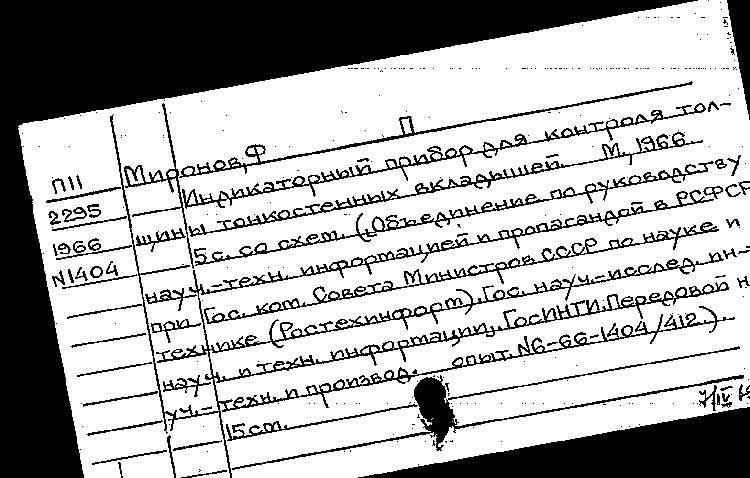 П
П11 Миронов, Ф
2295 Индикаторный прибор для контроля тол-
1966 щины тонкостенных вкладышей. М., 1966
N1404 5 с. со схем. (Объединение по руководству
науч.-техн. информацией и пропагандой в РСФСР
при Гос. ком. Совета Министров СССР по науке и
технике (Ростехинформ). Гос. науч.-исслед. ин-
науч. и техн. информации. ГосИНТИ. Передовой н
уч.-техн. и произвол. опыт. N6-66-1404/412.).
15 ст.